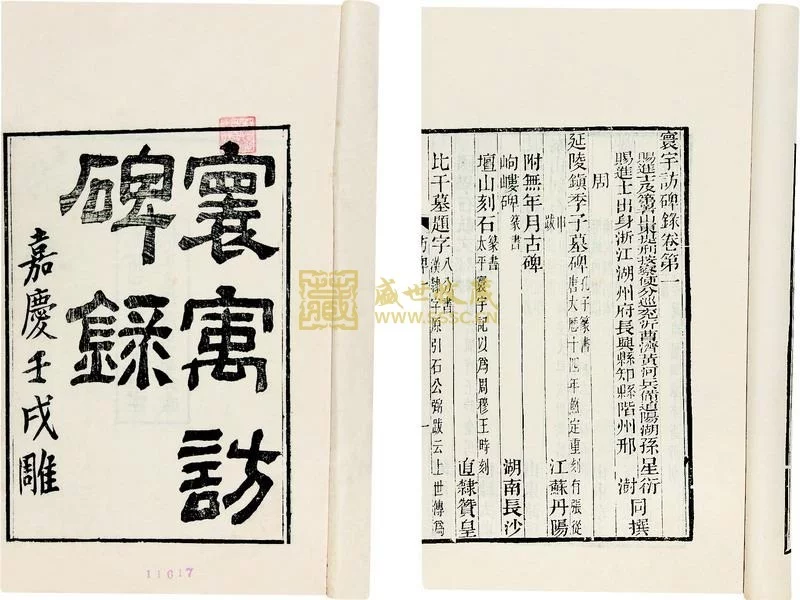 寰㝢訪
碑錄
嘉慶壬戌雕
11617
寰宇訪碑錄卷第一
賜進士及第署山東提刑按察使分巡兗沂曹濟黃河兵備道陽湖孫星衍
賜進士出身浙江湖州府長興縣知縣階州邢澍同撰
周
延陵鎮季子墓碑 孔子篆書 唐大歷十四年蕭定重刻有張從
申跋 江蘇丹陽
附無年月古碑
岣嶁碑 篆書 湖南長沙
壇山刻石 篆書 太平寰宇記以爲周穆王時刻 直隸贊皇
比干墓題字 八分書 漢隸字原引石公弼跋云上世傳爲
訪碑
一
盛世收藏
SSSC.CN